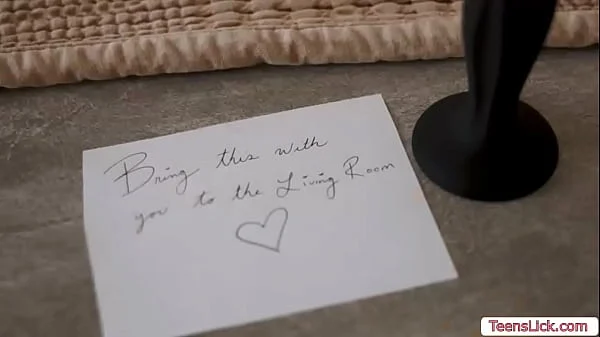 Bring this with
you to the Living Room
TeensLick.com